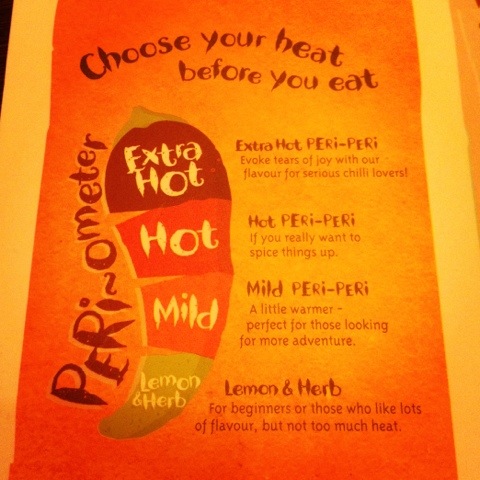 Choose your heat
before you eat
PERi-ometer
Extra
HOT
Hot
Mild
Lemon
&Herb
Extra Hot PERi-PERi
Evoke tears of joy with our
flavour for serious chilli lovers!
Hot PERi-PERi
If you really want to
spice things up.
Mild PERi-PERi
A little warmer -
perfect for those looking
for more adventure.
Lemon & Herb
For beginners or those who like lots
of flavour, but not too much heat.